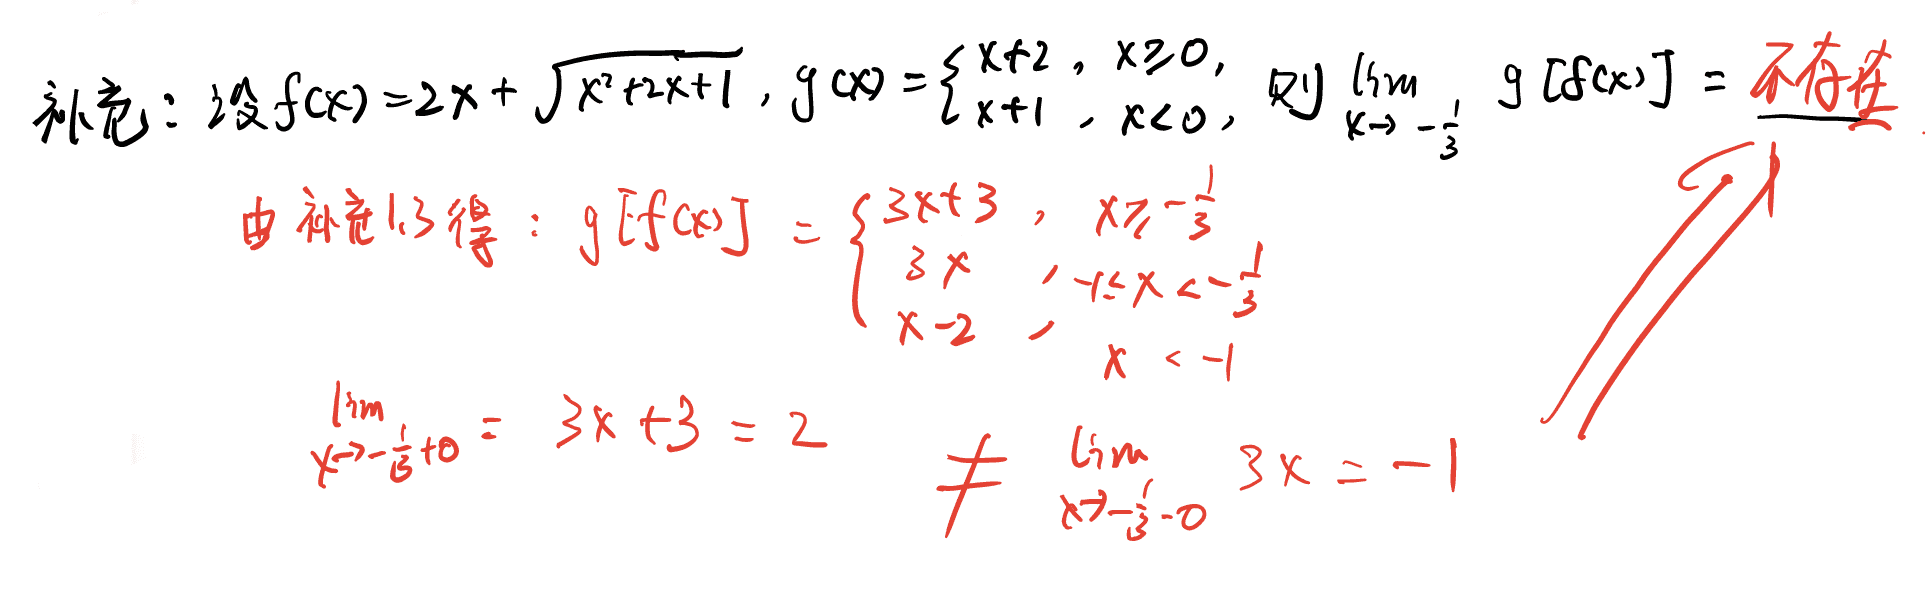 补充：设f(x)=2x+√(x²+2x+1)，g(x)={x+2，x≥0，x+1，x<0，则 lim x→-1/3 g[f(x)]=不存在.
由补充1.3得：g[f(x)]={3x+3，x≥-1/3
3x，-1≤x<-1/3
x-2，x<-1
lim x→-1/3+0 = 3x+3=2 ≠ lim x→-1/3-0 3x=-1